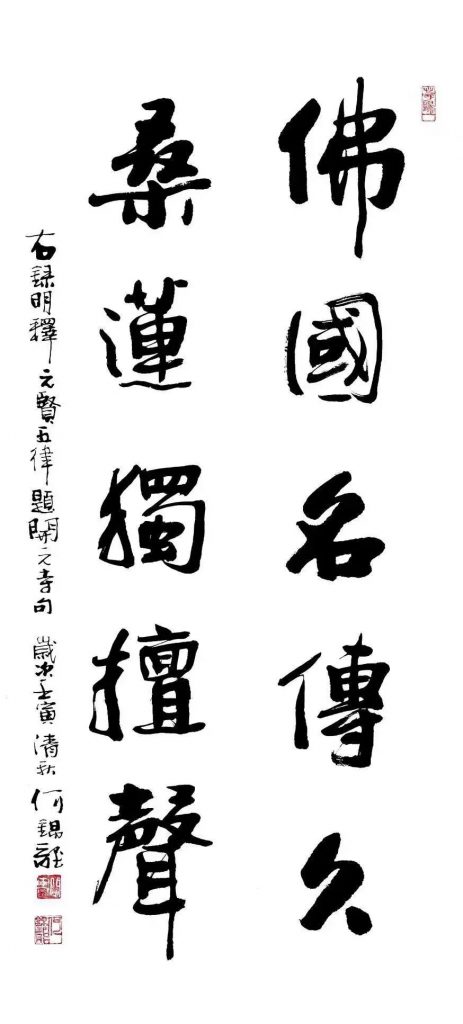 佛國名傳久
桑蓮獨擅聲
右録明釋元賢五律題開元寺句 歲次壬寅清秋 何錦龍